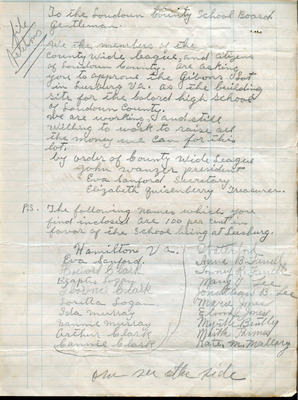 To the Loudoun County School Board
Gentleman.
File
Petitions
We the members of the
County Wide League, and citizens
of Loudoun County are asking
you to approve the Gibons Lot
in Leesburg Va. as the building
site for the colord high school
of Loudoun County.
We are working and still
willing to work to raise all
the money we can for this
lot.
by order of County Wide League
John Wanzer president
Eva Sanford Secretary
Elizabeth Quisenberry Treasurer.
P.S. The following names which you
find inclosed are 100 per cent in
favor of the School being at Leesburg.
Hamilton Va.
Eva Sanford.
Clark
Clark
Loretta Logan
Ida Murray
Fannie Murray
Arthur Clark
Cannie Clark
Mary J. Lee
Lee
Marie
Jones
Myrtle
Katie M. Mallory
over see other side